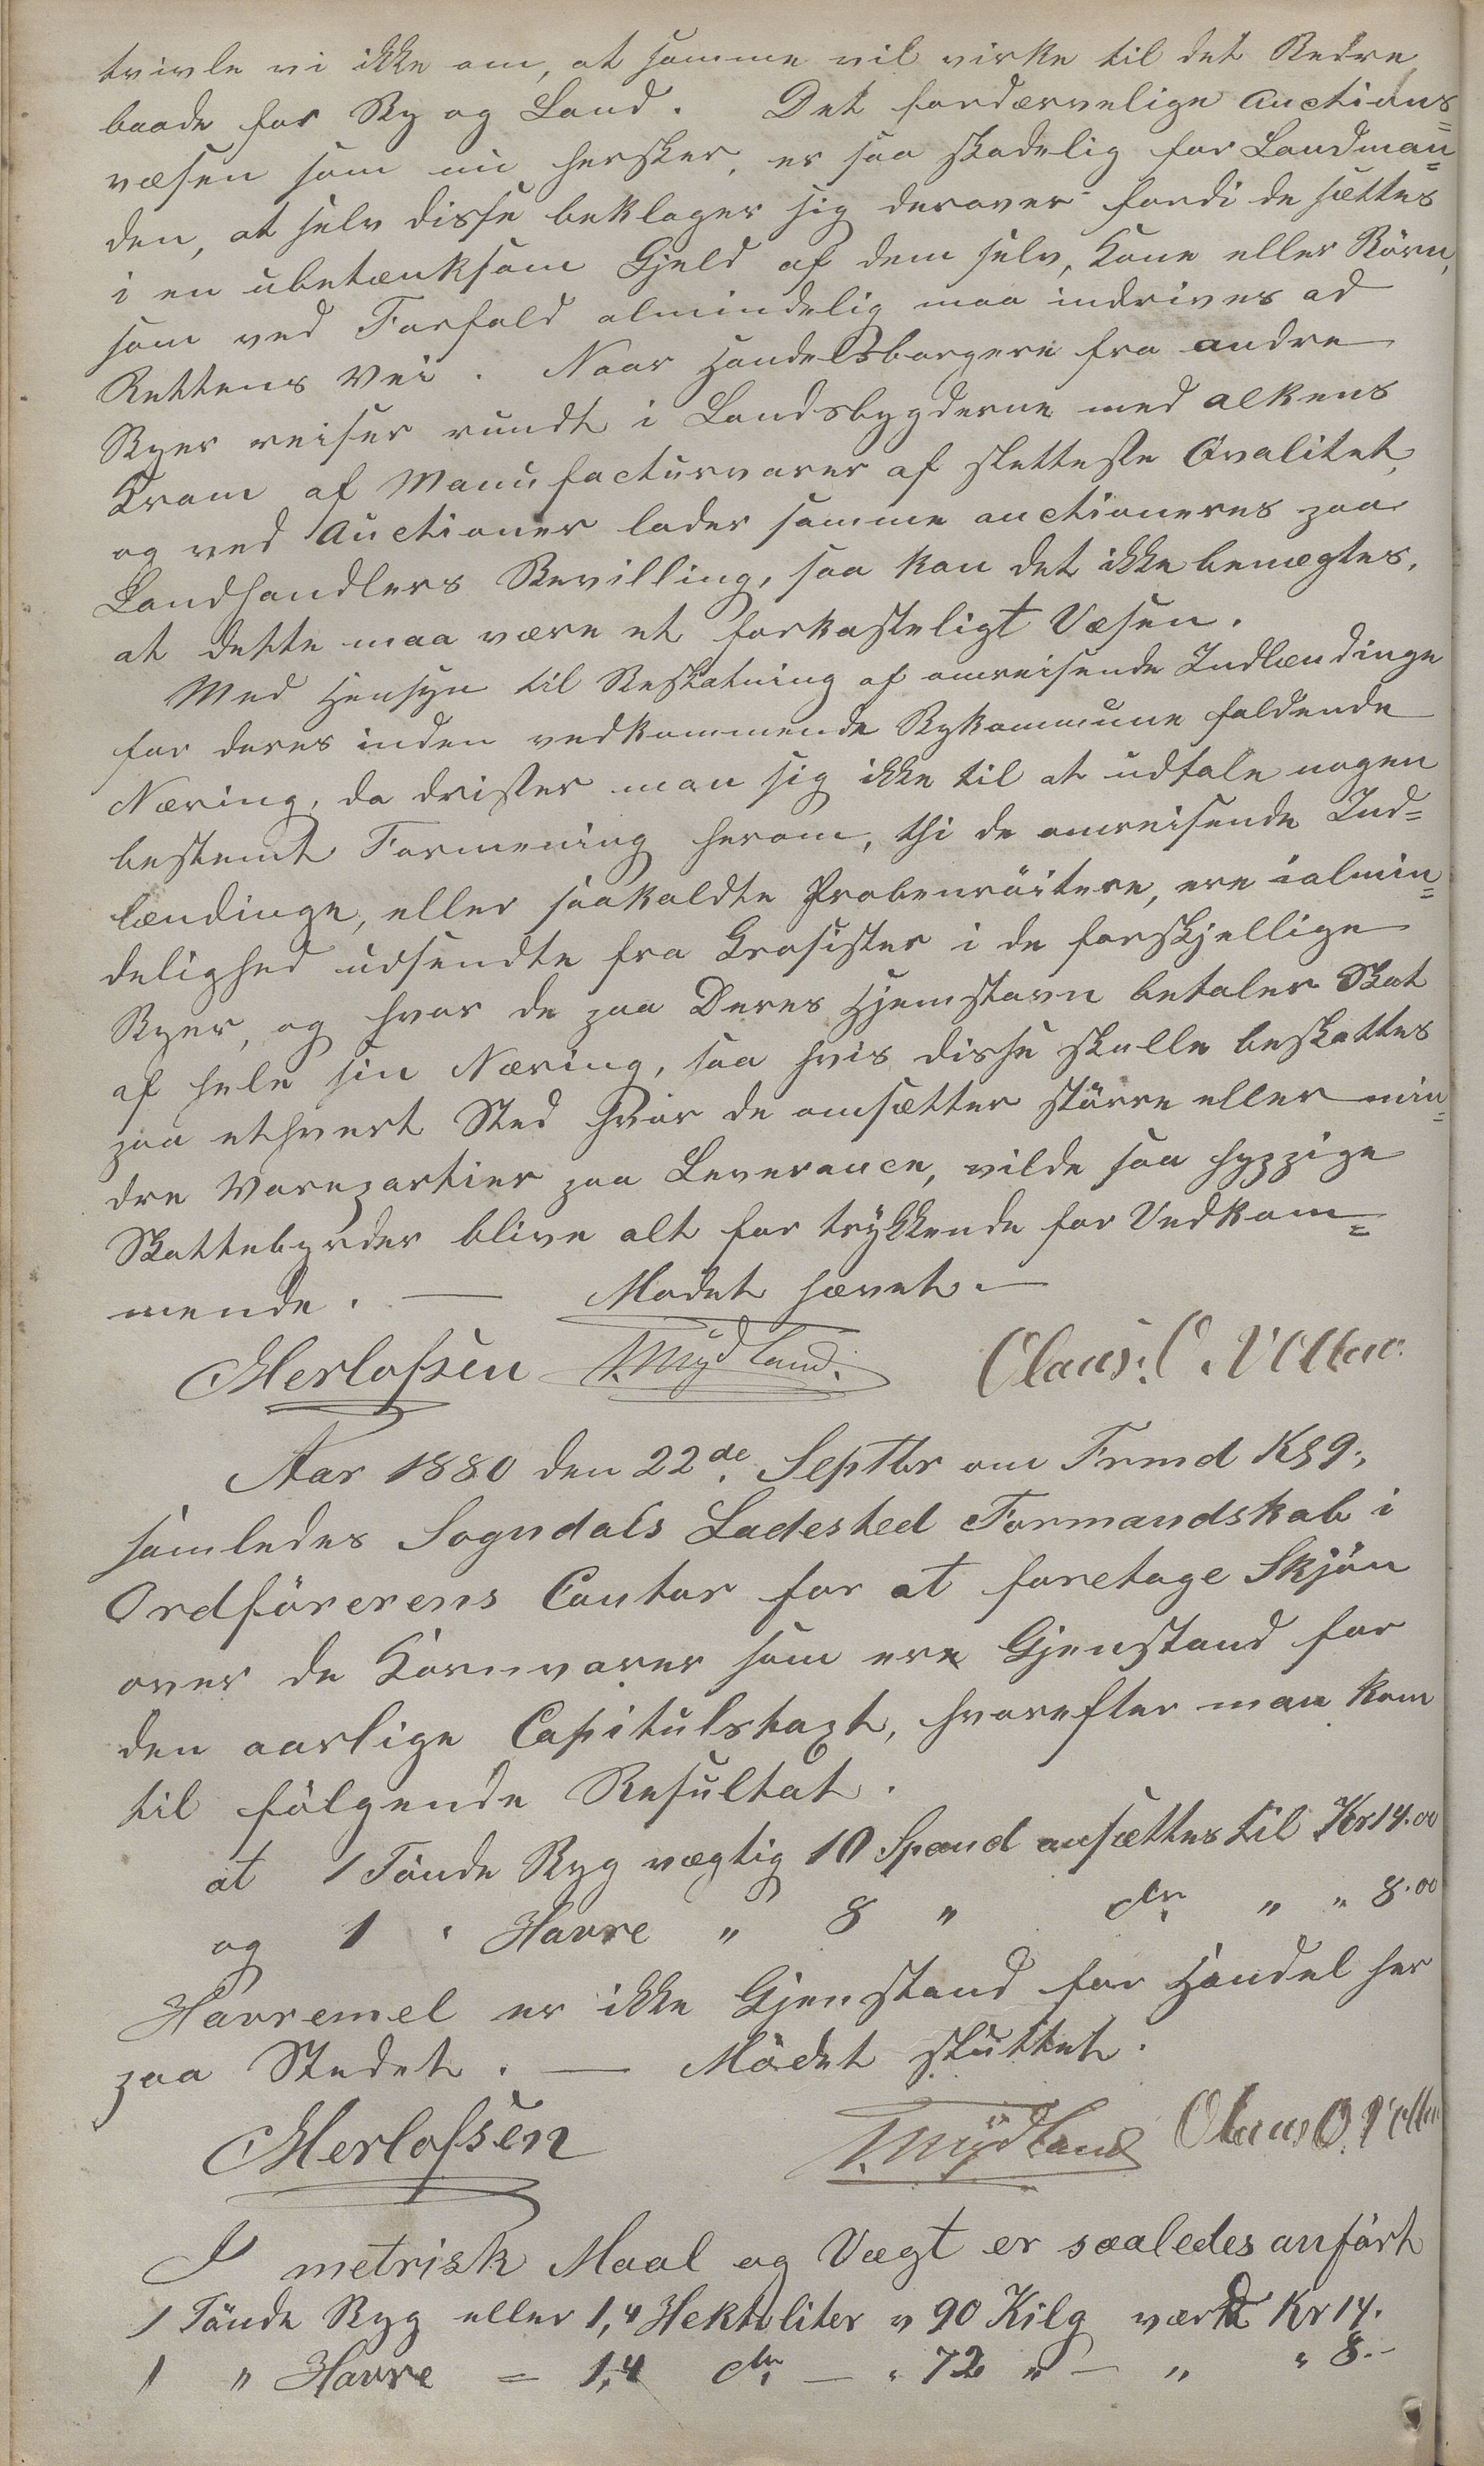 tvivle vi ikke om, at samme vil virke til det Bedre
baade for By og Land. Det fordærvelige Auctions=
væsen som nu hersker, er saa skadelig for Landman=
den, at selv disse beklager sig derover fordi de sættes
i en ubetænksom Gjeld af dem selv, Kone eller Börn,
som ved Forfald almindelig maa indrives ad
Rettens Vei. Naar Handelsborgere fra andre
Byer reiser rundt i Landsbygderne med alkens
Kram af Manufacturvarer af sletteste Qvalitet,
og ved Auctioner lader samme auctioneres paa
Landhandlers Bevilling, saa kan det ikke benægtes,
at dette maa være et forkasteligt Væsen.
Med Hensyn til Beskatning af omreisende Indlændinge
for deres inden vedkommende Bykommune faldende
Næring, da drister man sig ikke til at udtale nogen
bestemt Formening herom, thi de omreisende Ind=
lændinge, eller saakaldte Probenreitere, ere i almin=
delighed udsendte fra Grosister i de forskjellige
Byer, og hvor de paa Deres Hjemstavn betaler Skat
af hele sin Næring, saa hvis disse skulle beskattes
paa ethvert Sted hvor de omsætter större eller min=
dre Varepartier paa Leverance, vilde saa hyppige
Skattebyrder blive alt for trykkende for Vedkom=
mende. — Mødet hævet. —
Herlofsen T. Mydland. Claus. O.
Aar 1880 den 22de Septbr om Frmd Kl 9,
samledes Sogndals Ladested Formandskab i
Ordförerens Contor for at foretage Skjön
over de Kornvarer som ere Gjenstand for
den aarlige Capitulstaxt, hvorefter man kom
til fölgende Resultat.
at 1 Tönde Byg vægtig 10 Spand ansættes til Kr 14.00
og 1 " Havre " 8 " do " " 8.00
Havremel er ikke Gjenstand for Handel her
paa Stedet. — Mödet sluttet.
Herlofsen T. Mydland Claus O.
I metrisk Maal og Vægt er saaledes anfört
1 Tönde Byg eller 1,4 Hektoliter " 90 Kilg værd Kr 14.
1 " Havre = 1,4 do — " 72 " — " " 8.-